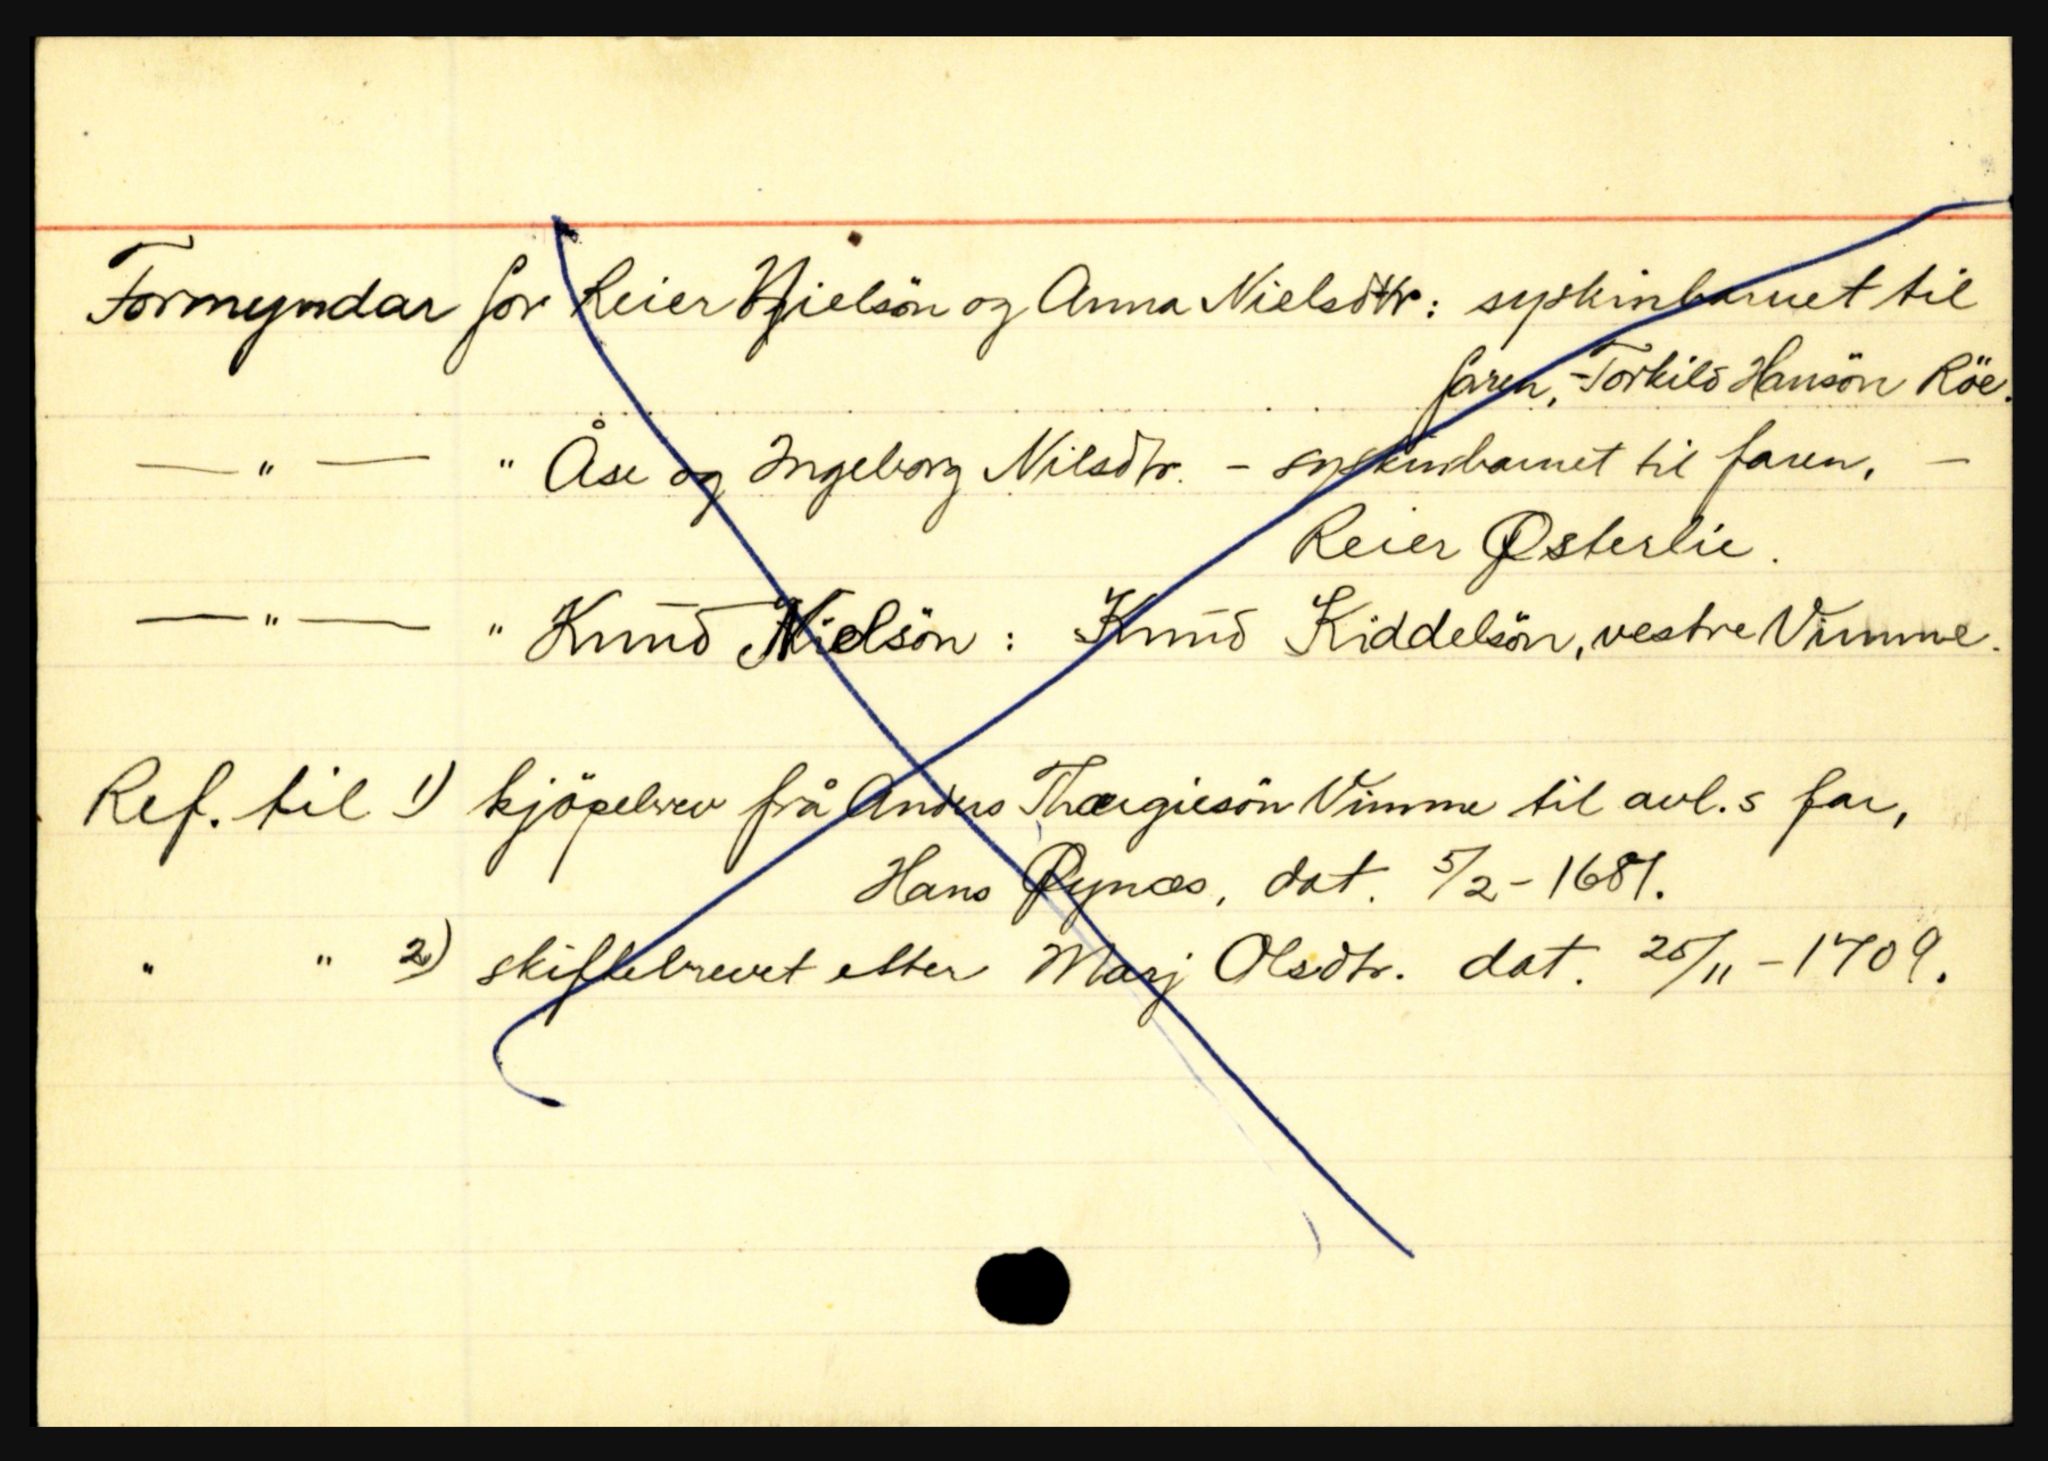 Formyndar for Reier Nielsön og Anna Nielsdtr: syskinbarnet til
faren, Torkild Hansön Röe.
— " — " Åse og Ingeborg Nilsdtr. - syskinbarnet til faren, -
Reier Østerlie.
— " — " Knud Nielsön : Knud Kiddelsön, vestre Vimme.
Ref. til 1) kjöpebrev frå Anders Thærgiesön Vimme til avl.s far,
Hans Øynæs, dat. 5/2 - 1681.
" " 2) skiftebrevet etter Marj Olsdtr. dat. 25/11 - 1709.